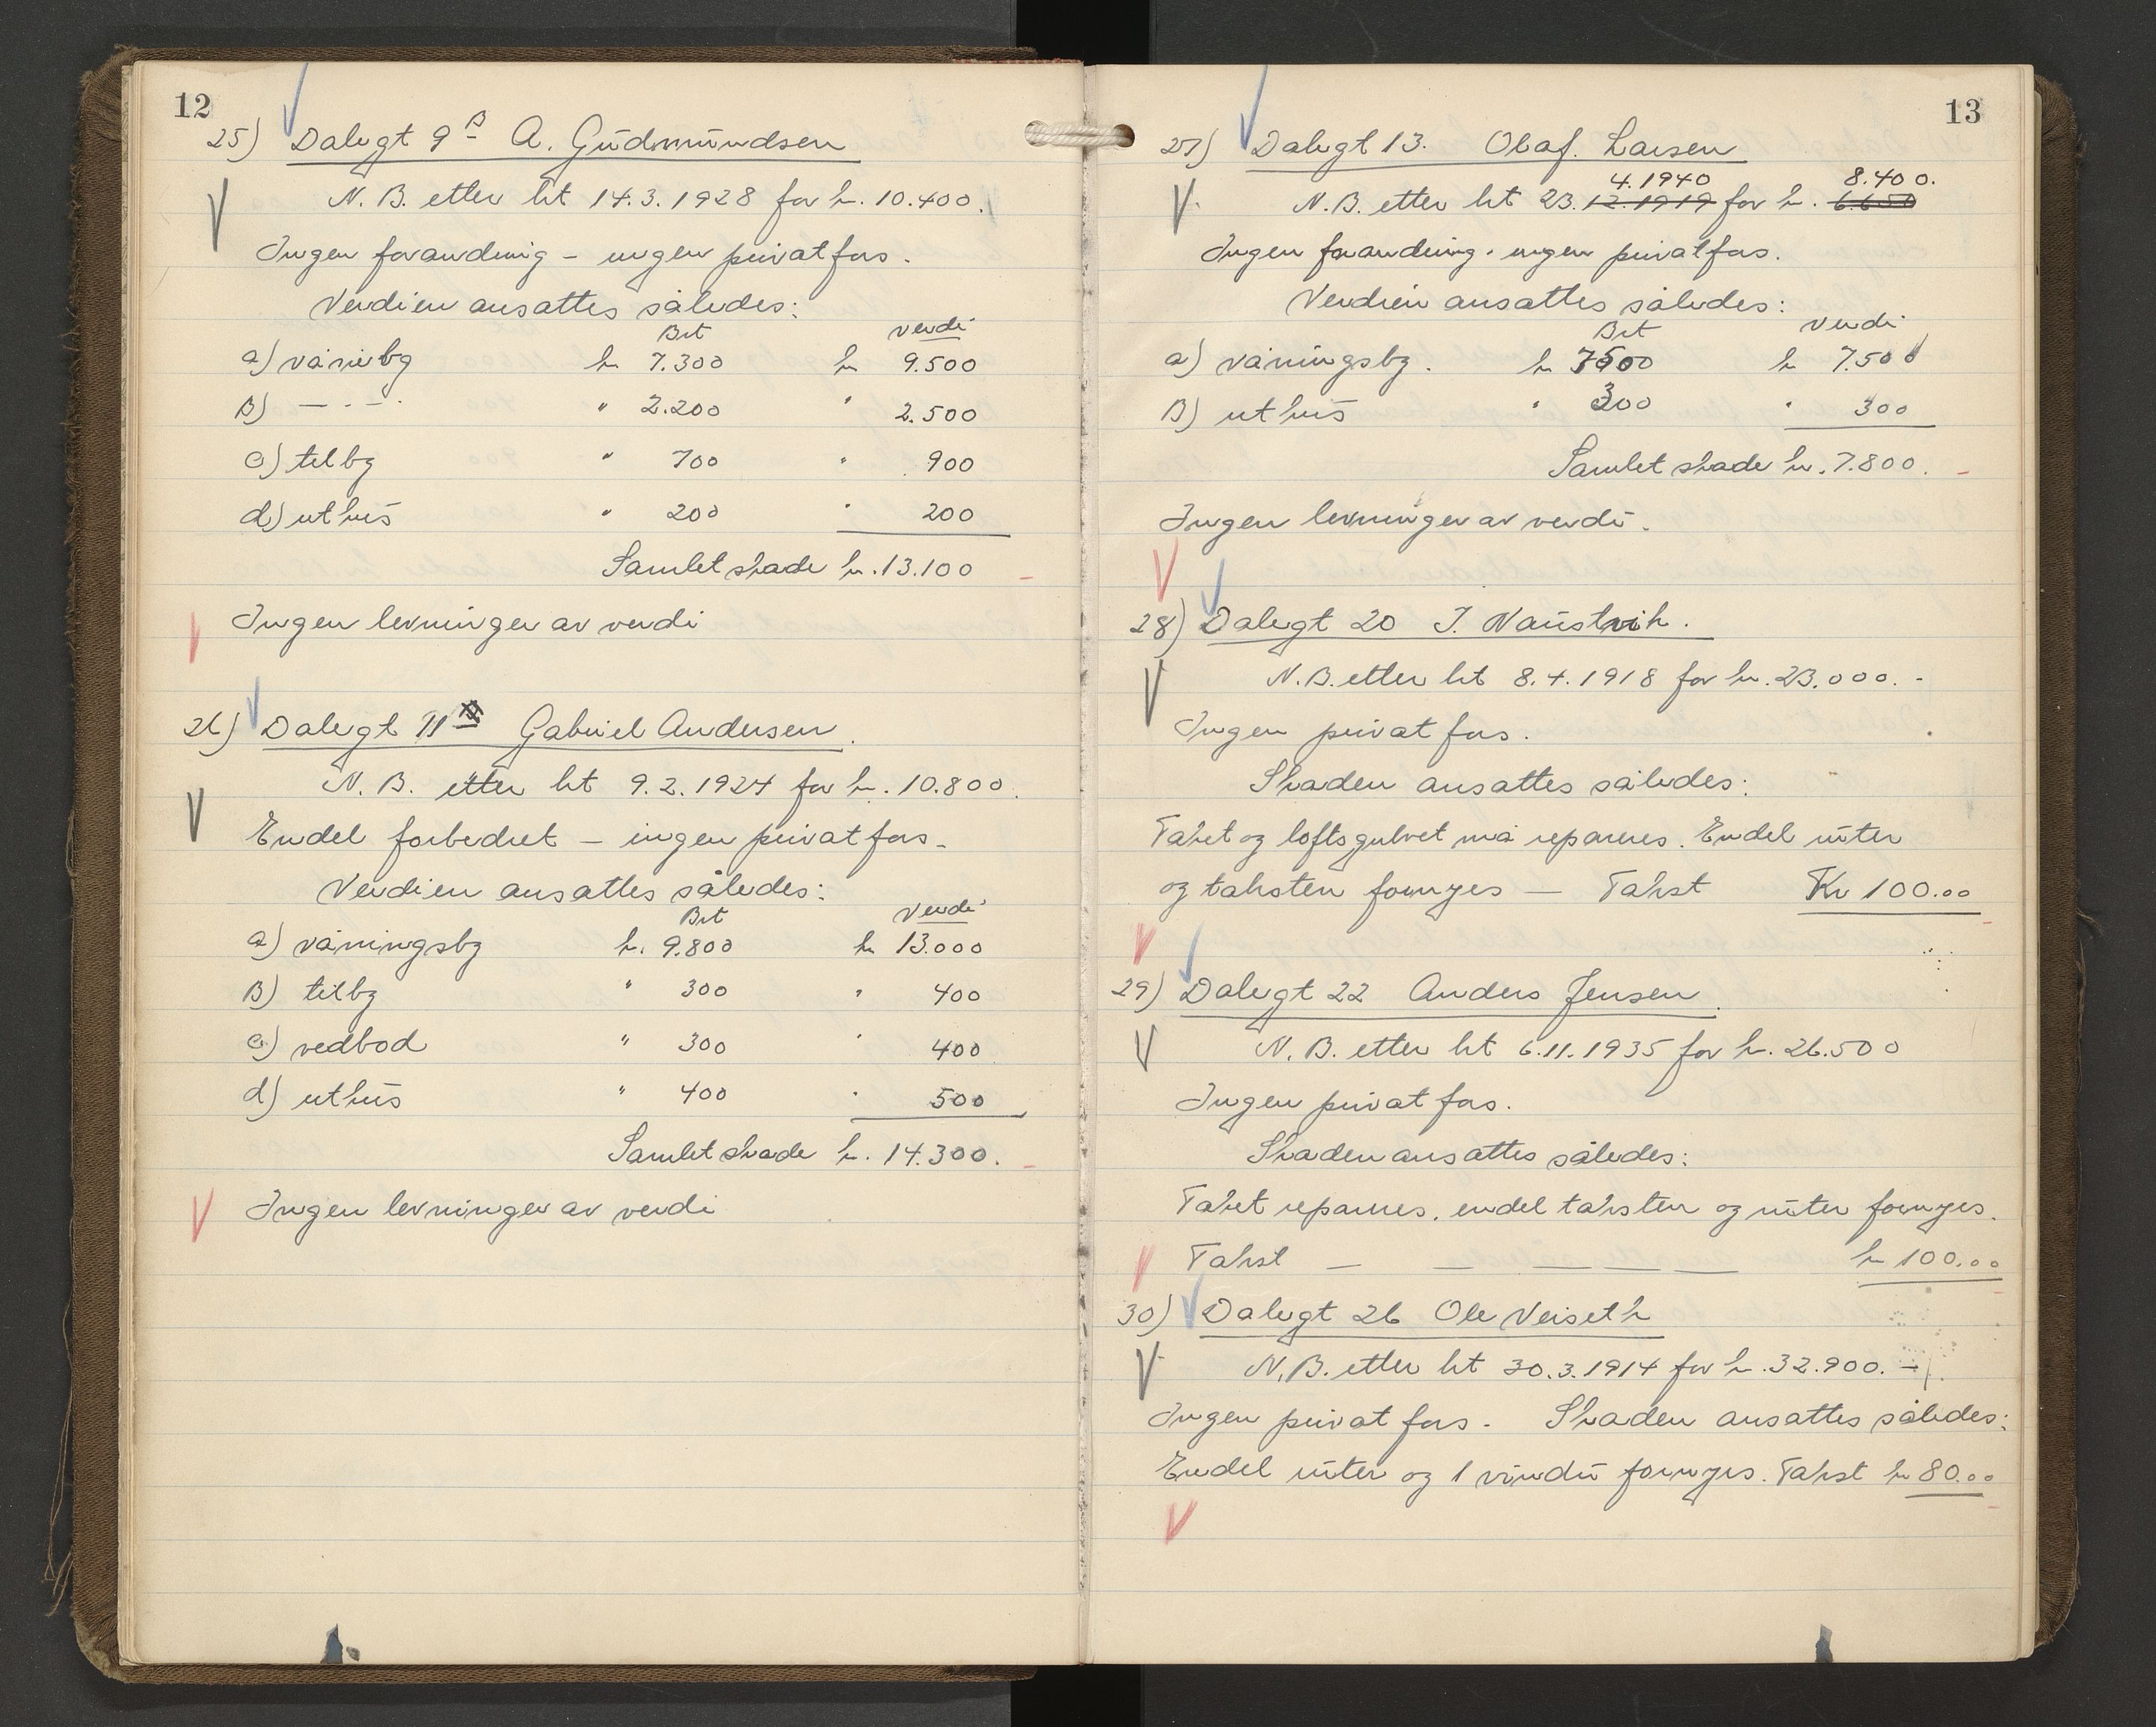 12
25) Dalegt 9 B A. Gudmundsen
N. B. etter bt 14.3.1928 for kr. 10.400.
Ingen forandring - ingen privatfors.
Verdien ansattes således:
Bet verdi
a) vånebg kr 7.300 kr 9.500
B) — . - . " 2.200 " 2.500
c) tilbg " 700 " 900
d) uthus " 200 " 200
Samlet skade kr. 13.100
Ingen levninger av verdi
26) Dalegt 11 Gabriel Andersen.
N. B. etter bt 9.2.1924 for kr. 10.800.
Endel forbedret - ingen privatfors.
Verdien ansattes således:
Bet Verdi
a) våningsbg kr. 9.800 kr 13.000
B) tilbg " 300 " 400
c) vedbod " 300 " 400
d) uthus " 400 " 500
Samlet skade kr. 14.300.
Ingen levninger av verdi
13
27) Dalegt 13. Olaf. Larsen
4.1940 8.400.
N.B. etter bt 23.12.1919 for kr. 6.650
Ingen forandring. ingen privatfors.
Verdien ansattes således:
Bet Verdi
a) våningsbg. kr 7500 kr 7.500
B) uthus " 300 " 300
Samlet skade kr. 7.800.
Ingen levninger av verdi.
28) Dalegt 20 J. Naustvik.
N.B. etter bt 8.4.1918 for kr. 23.000.-
Ingen privat fors.
Skaden ansattes således:
Taket og loftsgulvet må repareres. Endel ruter
og taksten fornyes — Takst Kr 100.00
29) Dalegt 22 Anders Jensen.
N. B. etter bt 6.11.1935 for kr. 26.500
Ingen privat fors.
Skaden ansattes således:
Taket repareres, endel taksten og ruter fornyes.
Takst — — — — — kr 100.00
30) Dalegt 26 Ole Veiseth
N.B. etter bt 30.3.1914 for kr. 32.900.-
Ingen privat fors. Skaden ansattes således:
Endel ruter og 1 vindu fornyes. Takst kr 80.00